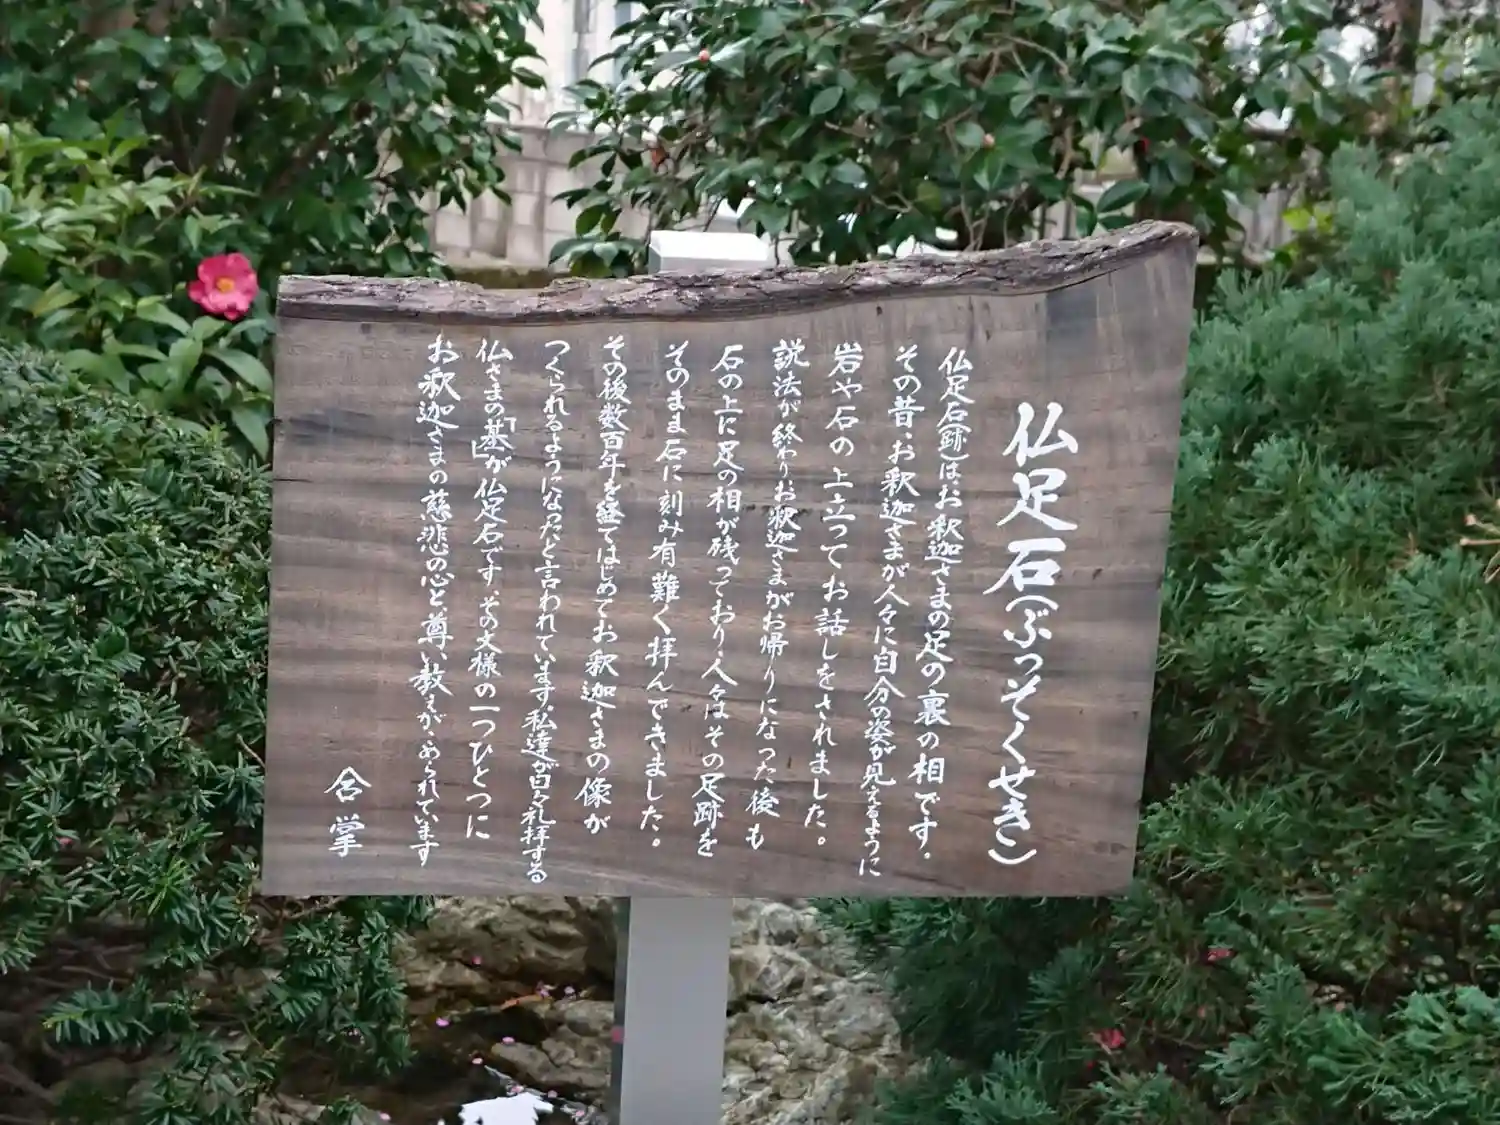 仏足石(ぶっそくせき)
仏足石(跡)はお釈迦さまの足の裏の相です。
その昔、お釈迦さまが人々に自分の姿が見えるように
岩や石の上立ってお話しをされました。
説法が終わりお釈迦さまがお帰りになった後も
石の上に足の相が残っており、人々はその足跡を
そのまま石に刻み有難く拝んできました。
その後数百年を経てはじめてお釈迦さまの像が
つくられるようになったと言われています。私達が日々礼拝する
仏さまの「基」が仏足石です。その文様の一つひとつに
お釈迦さまの慈悲の心と、尊い教えが、こめられています
合掌